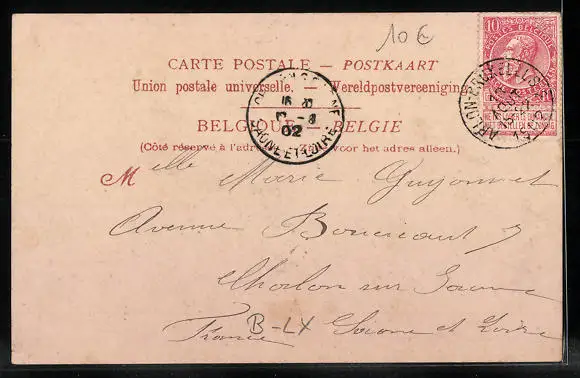 10€
10
CARTE POSTALE – POSTKAART
Union postale universelle. – Wereldpostvereeniging
BELGIQUE – BELGIE
(Côté réservé à l'adresse. – Zijde voor het adres alleen.)
SAONE-ET-LOIRE
02
ARLON-BRUXELLES
Melle Marie Guyonnet
Avenue Boucicaut 7
Chalon sur Saone
France B-LX Saone et Loire